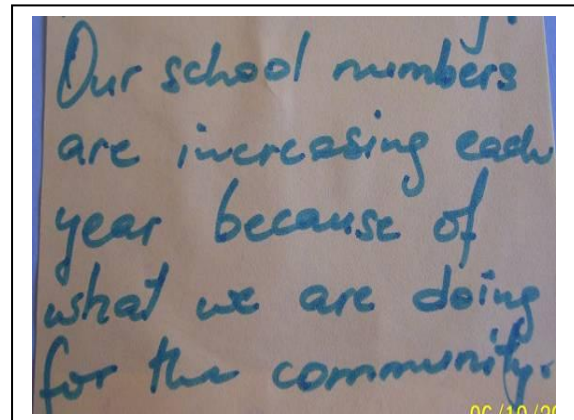 Our school numbers
are increasing each
year because of
what we are doing
for the community.
06/10/20